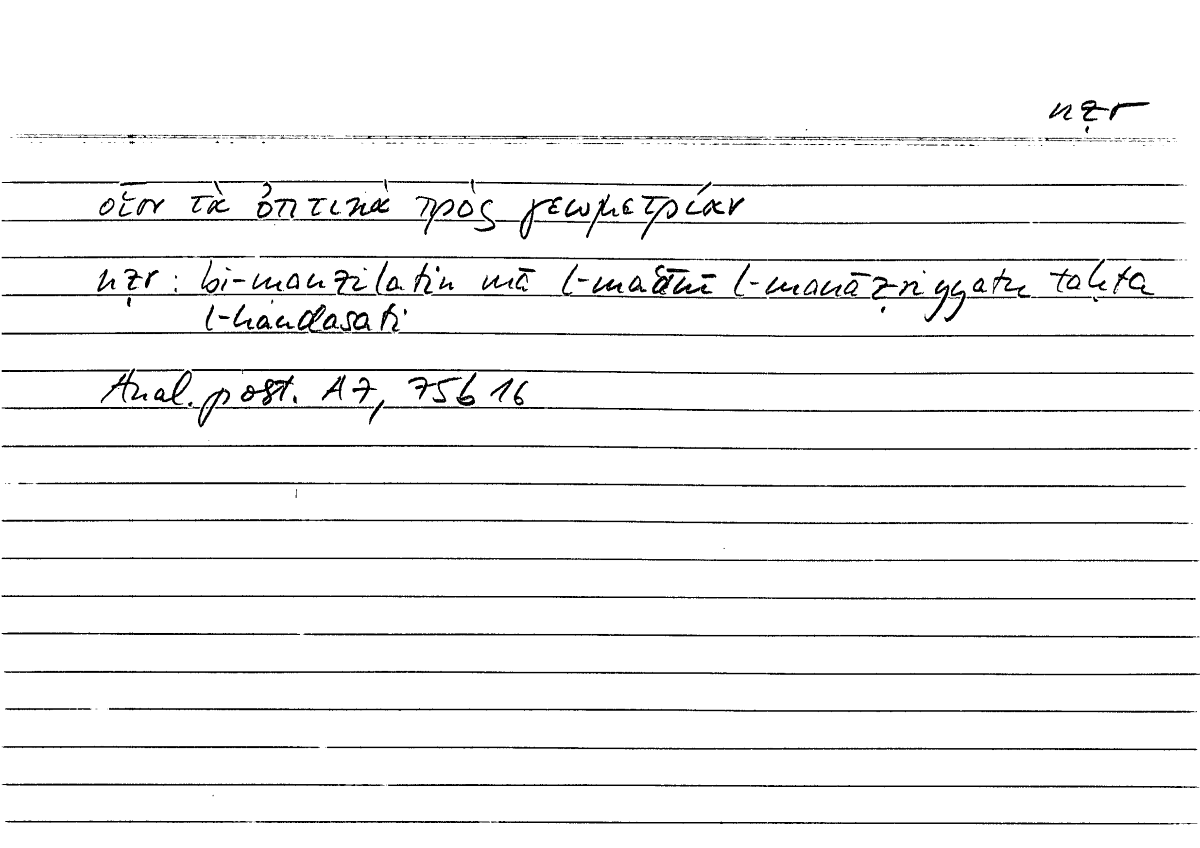 nẓr
οἷον τὰ ὀπτικὰ πρὸς γεωμετρίαν
nẓr : bi-manzilatin mā l-maʿānī l-manāẓriyyatu taḥta
l-handasati
Anal. post. A7, 75b16